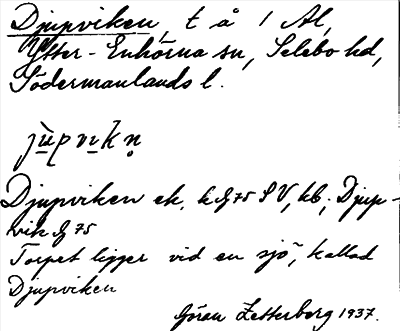 Djupviken, t å 1 Al,
Ytter-Enhörna sn, Selebo hd,
Södermanlands l.
jùpvıkn̥
Djupviken ek, k 75 SV, kb; Djup-
vik 75
Torpet ligger vid en sjö, kallad
Djupviken
Göran Zetterberg 1937.